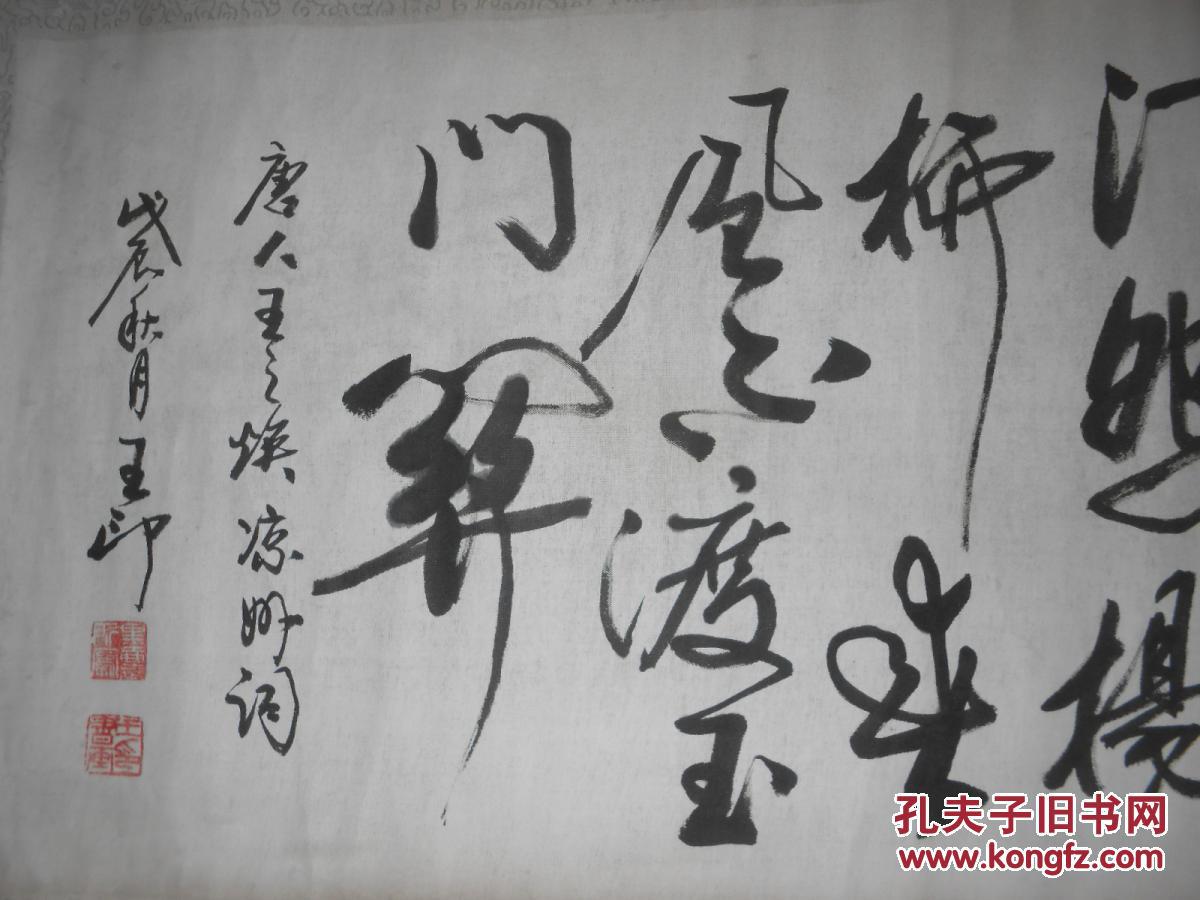 怨楊
柳春
風不渡玉
门関
唐人王之焕凉州词
戊辰秋月王印
孔夫子旧书网
www.kongfz.com